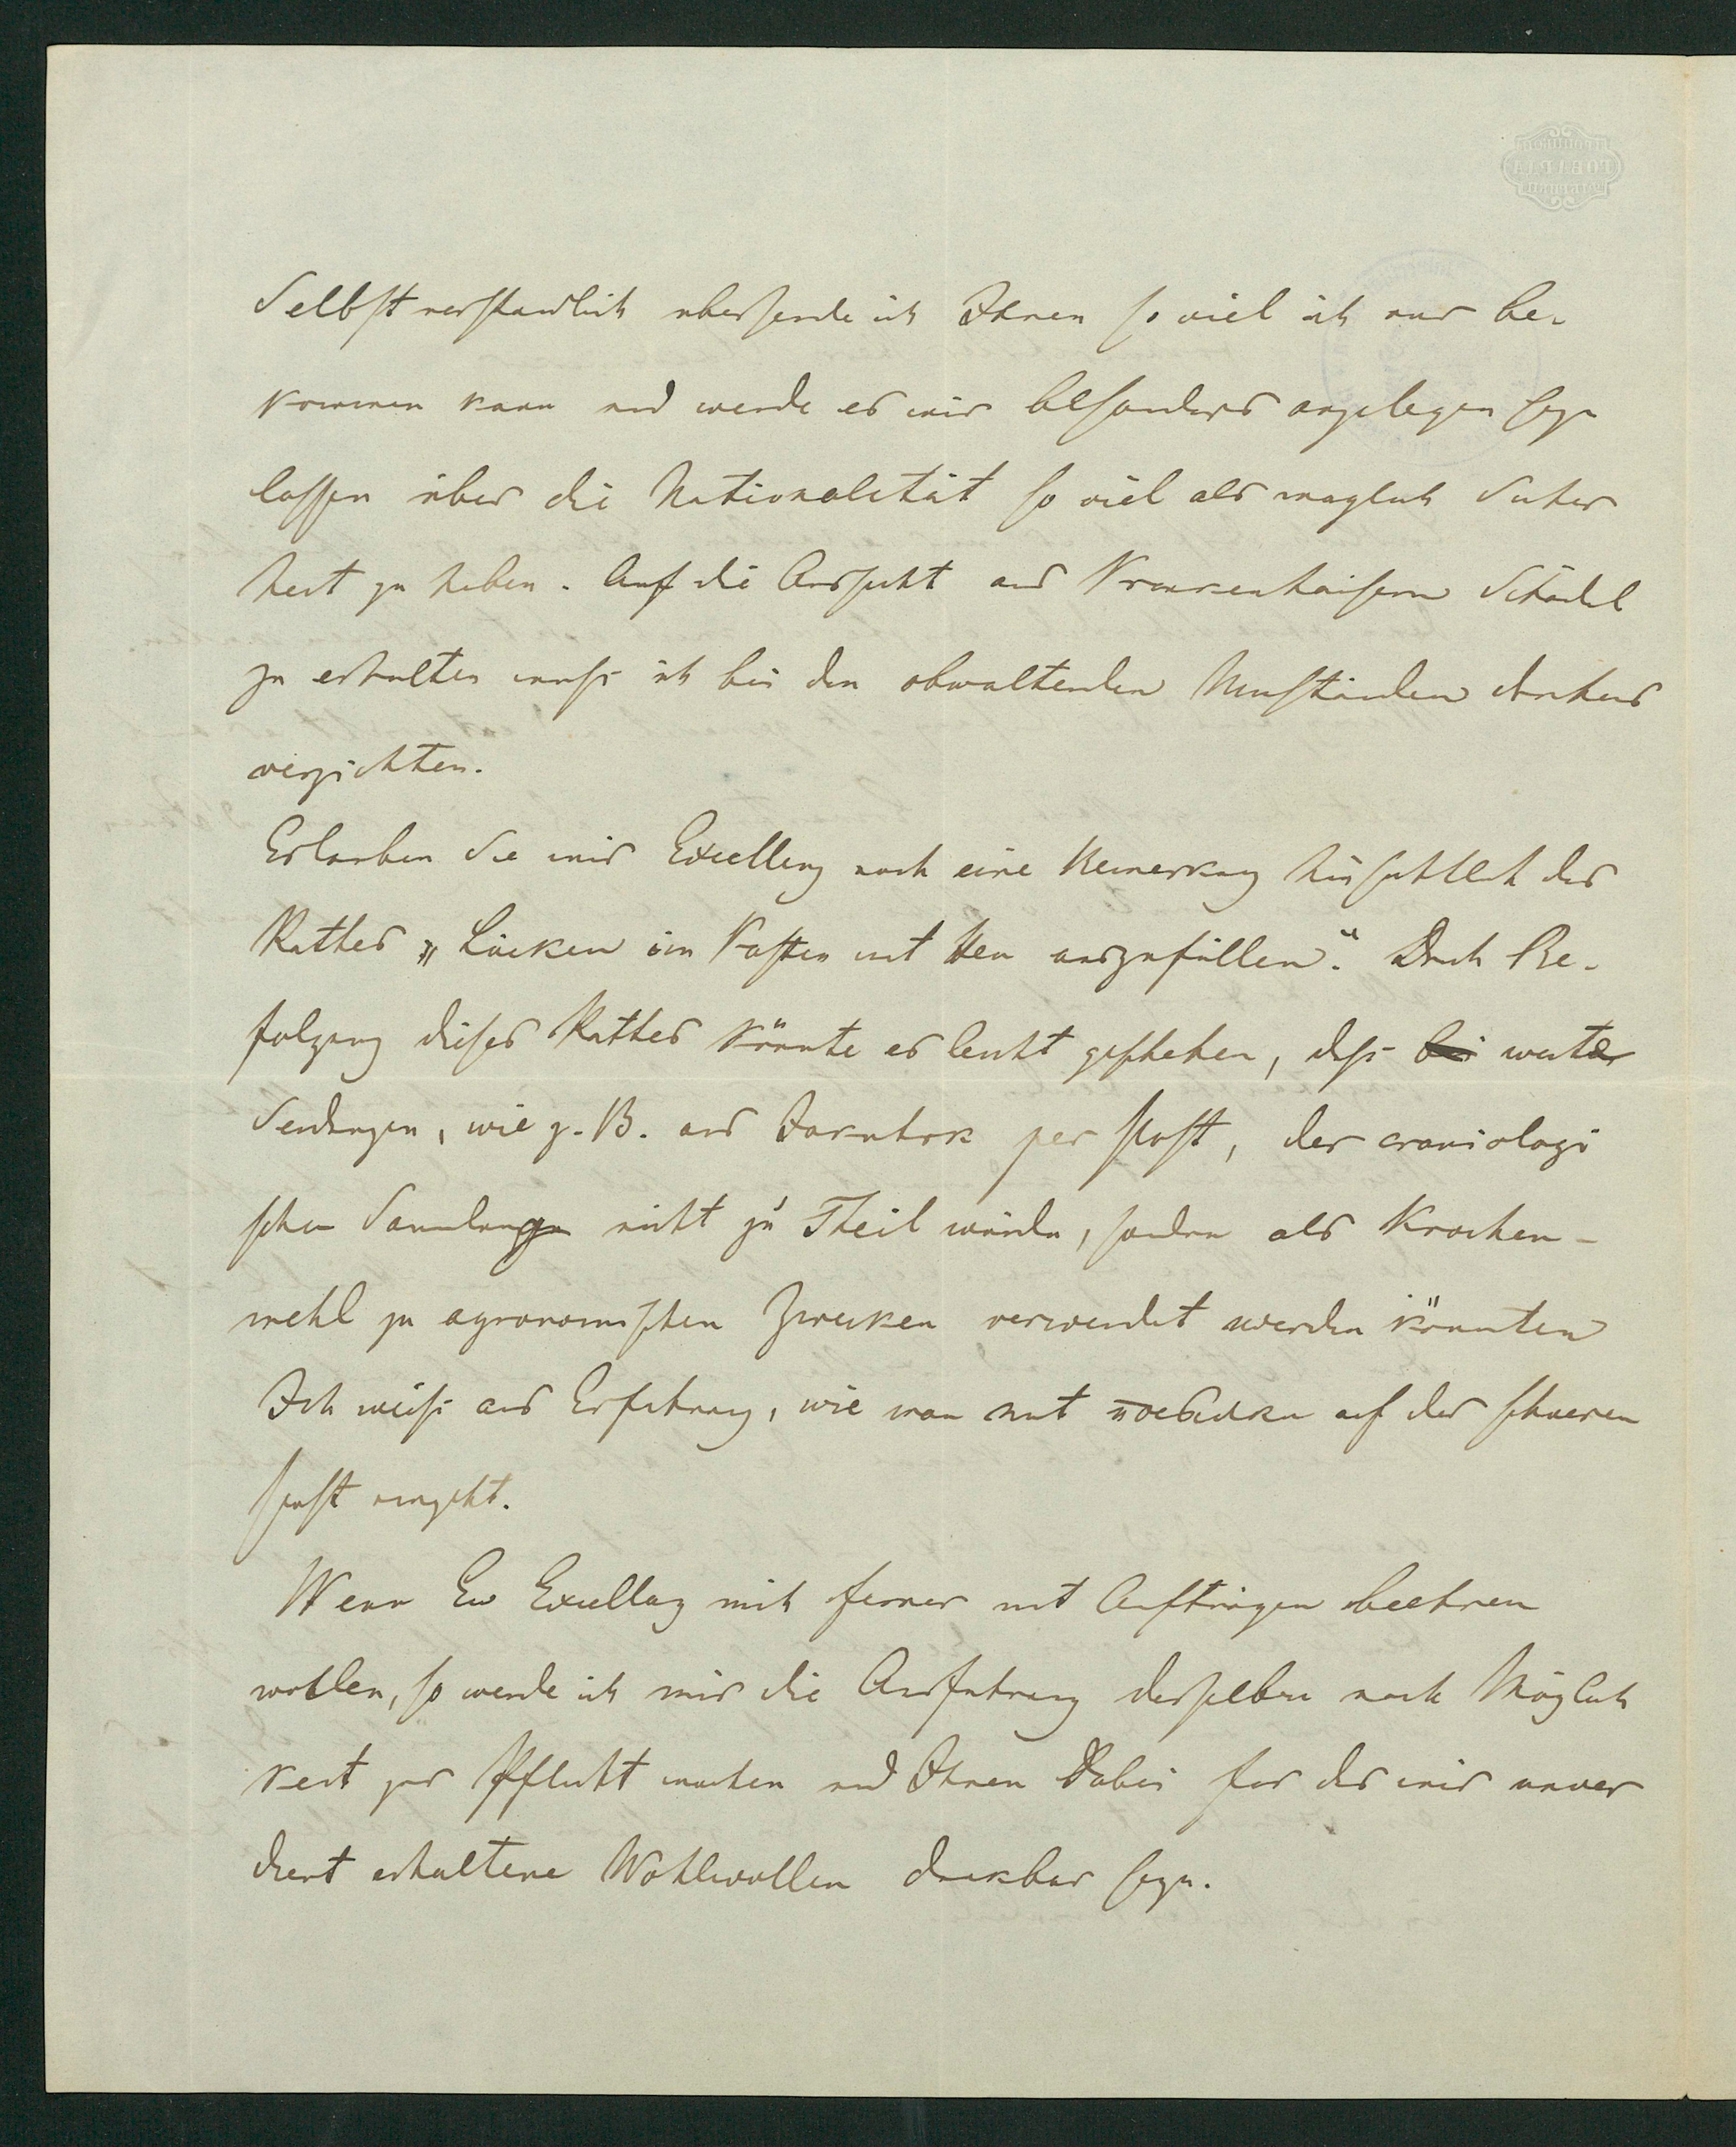 Selbstverständlich übersende ich Ihnen so viel ich nur be-
kommen kann und werde es mir besonders angelegen seyn
lassen über die Nationalität so viel als möglich Sicher
heit zu haben. Auf die Aussicht aus Krankenhäusern Schädel
zu erhalten muß ich bei den obwaltenden Umständen durchaus
verzichten.
Erlauben Sie mir Excellenz noch eine Bemerkung hinsichtlich des
Rathes „Lücken im Kasten mit Heu auszufüllen“. Durch Be-
folgung dieses Rathes könnte es leicht geschehen, daß weite
Sendungen, wie z. B. aus Jakutsk per Post, der craniologi
schen Sammlung nicht zu Theil würden, sondern als Knochen-
mehl zu agronomischen Zwecken verwendet werden könnten
Ich weiß aus Erfahrung, wie man mit посылки auf der schweren
Post umgeht.
Wenn Ew Excellenz mich ferner mit Aufträgen beehren
wollen, so werde ich mir die Ausführung derselben nach Möglich
keit zur Pflicht machen und Ihnen dabei für das mir unver
dient erhaltene Wohlwollen dankbar seyn.